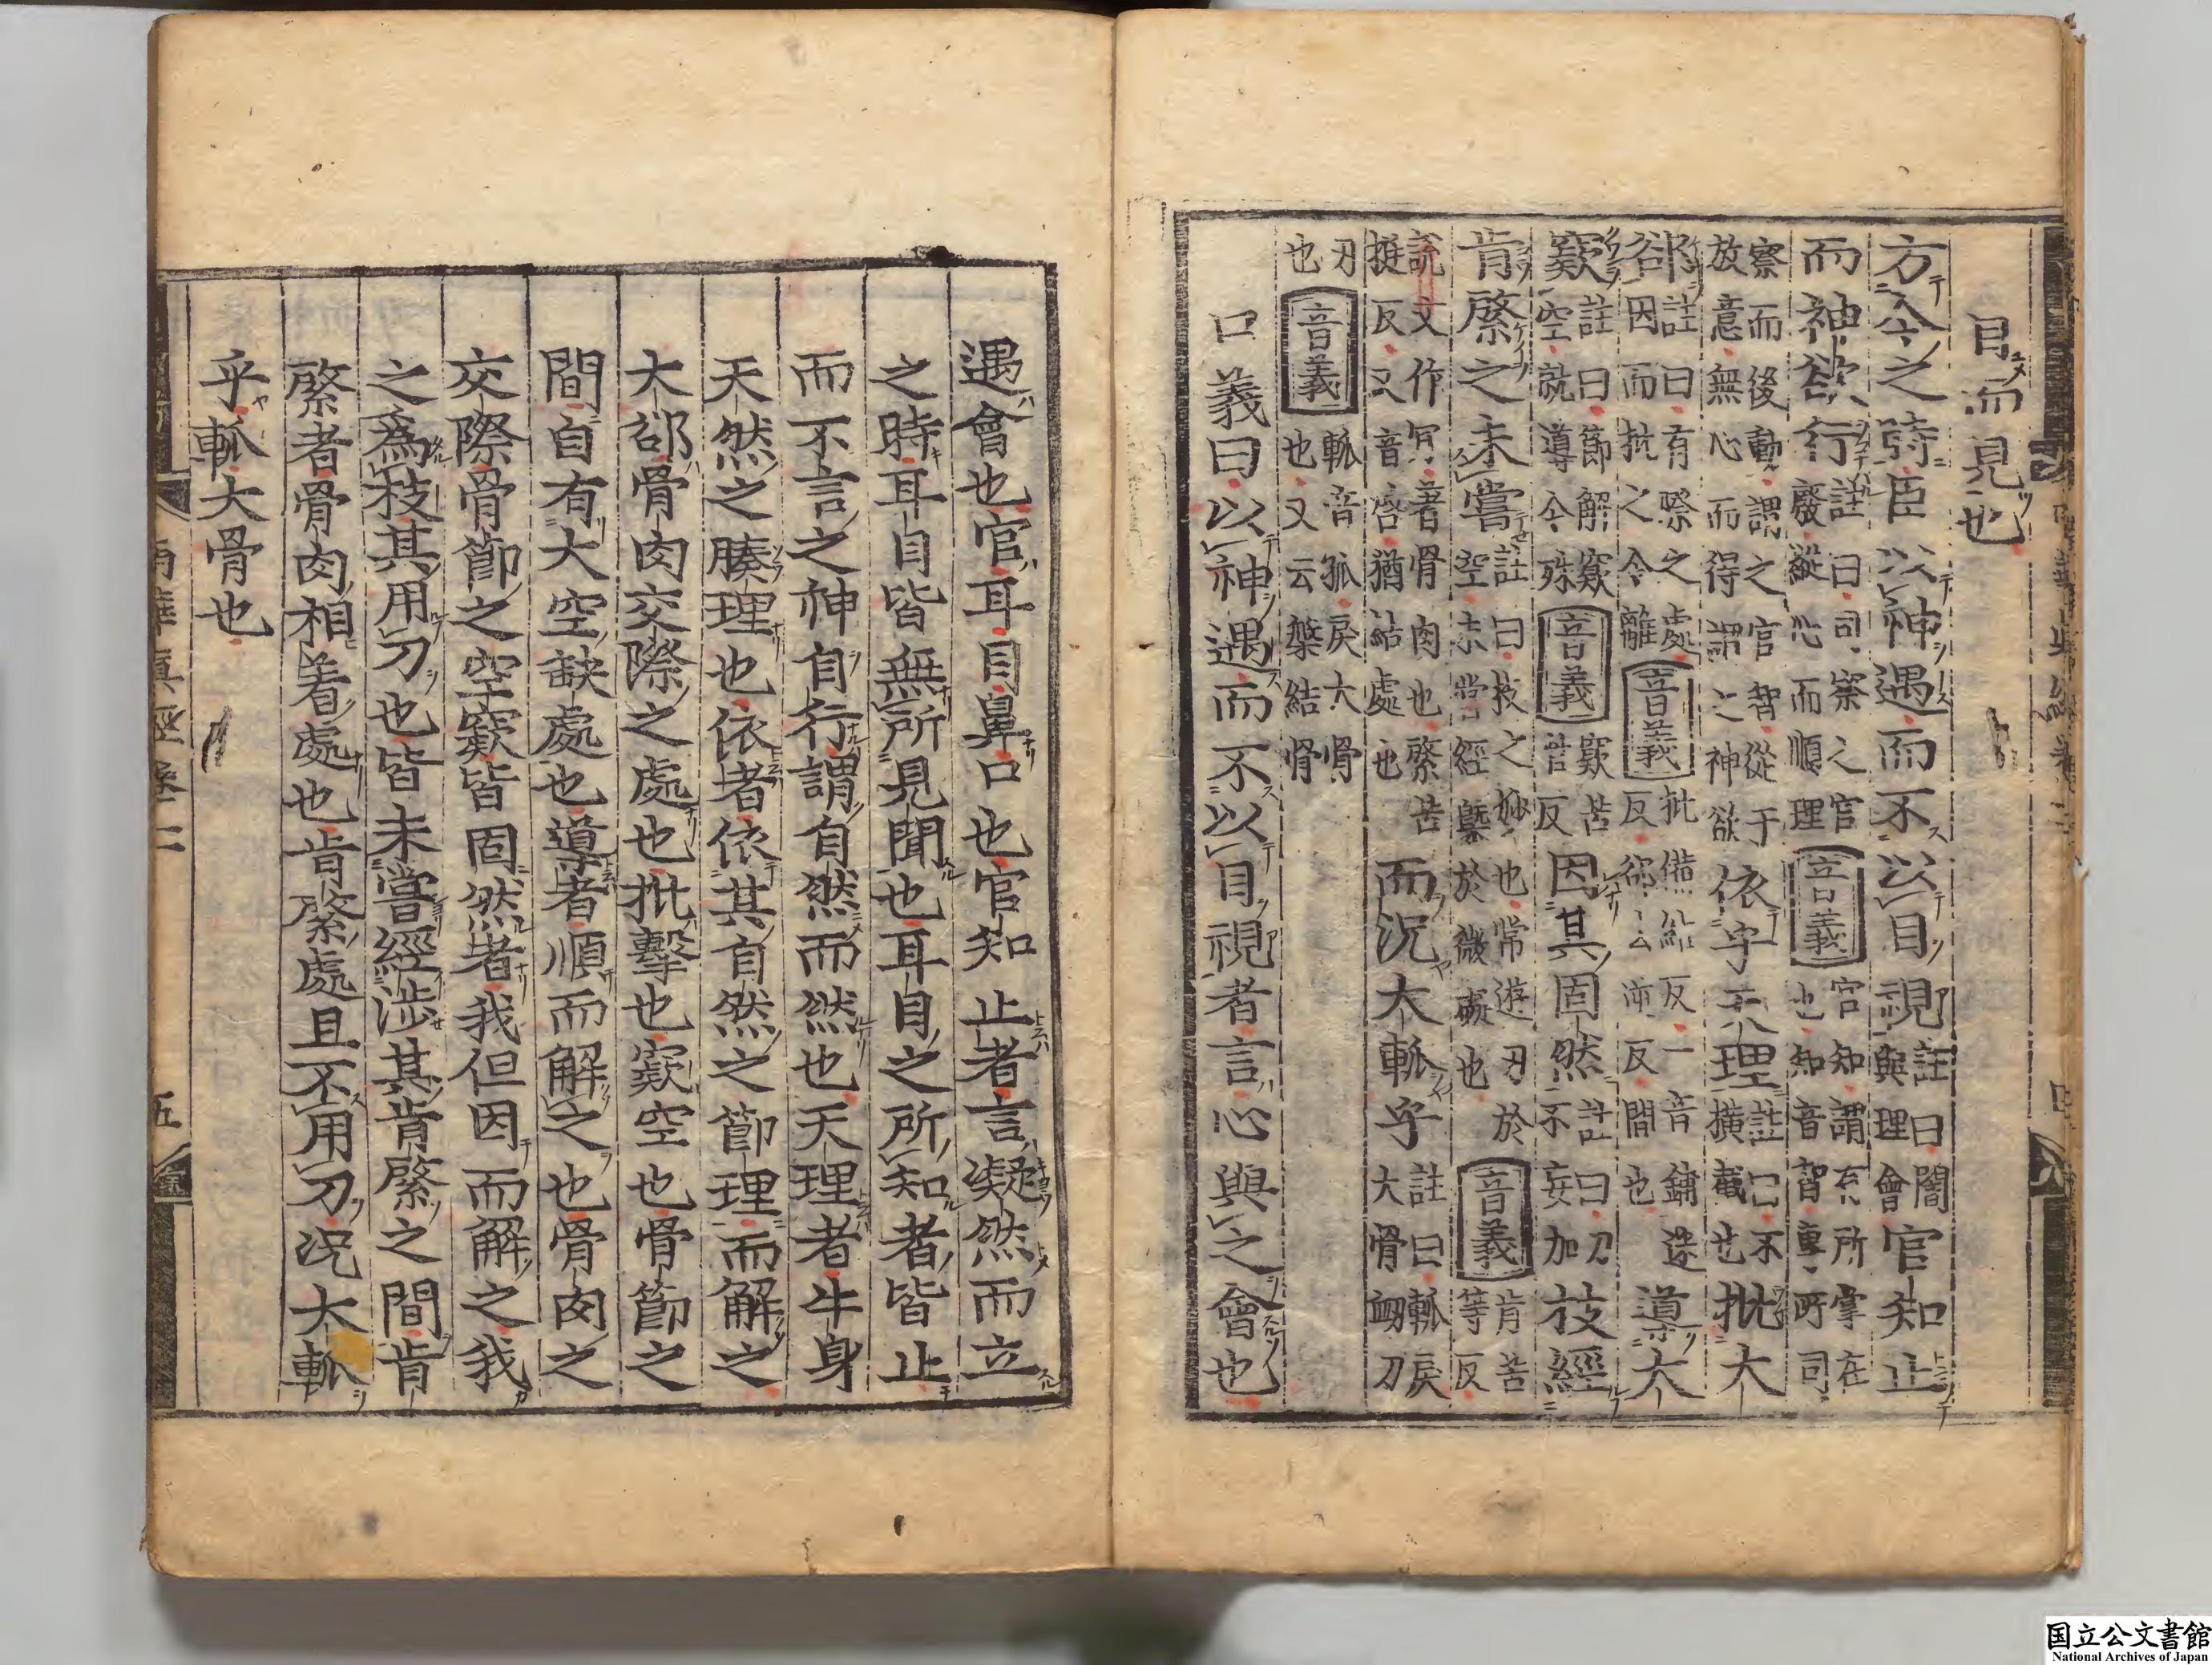 目而見也
方今之時臣以神遇而不以目視註曰闇與理會官知止
而神欲行註曰司察之官廢縱心而順理音義官知謂有所掌在也知音智專所司
察而後動謂之官智從于放意無心而得謂之神欲依乎天理註曰不橫截也批大
郤註曰有際之處因而批之令離音義批備結反一音鋪迷反郤去逆反間也導大
窾註曰節解窾空就導令殊音義窾苦管反因其固然註曰刀不妄加技經
肯綮之未嘗註曰技之妙也常遊刃於空未嘗經槩於微礙也音義肯苦等反
說文作肎著骨肉也綮苦挺反又音啓猶結處也而況大軱乎註曰軱戾大骨衂刀
刃也音義軱音孤戾大骨也又云槃結骨
口義曰以神遇而不以目視者言心與之會也
遇會也官耳目鼻口也官知止者言凝然而立
之時耳目皆無所見聞也耳目之所知者皆止
而不言之神自行謂自然而然也天理者牛身
天然之腠理也依者依其自然之節理而解之
大郤骨肉交際之處也批擊也窾空也骨節之
間自有大空缺處也導者順而解之也骨肉之
交際骨節之空窾皆固然者我但因而解之我
之爲技其用刀也皆未嘗經涉其肯綮之間肯
綮者骨肉相着處也肯綮處且不用刀況大軱
乎軱大骨也
南華眞經卷二
五
国立公文書館
National Archives of Japan